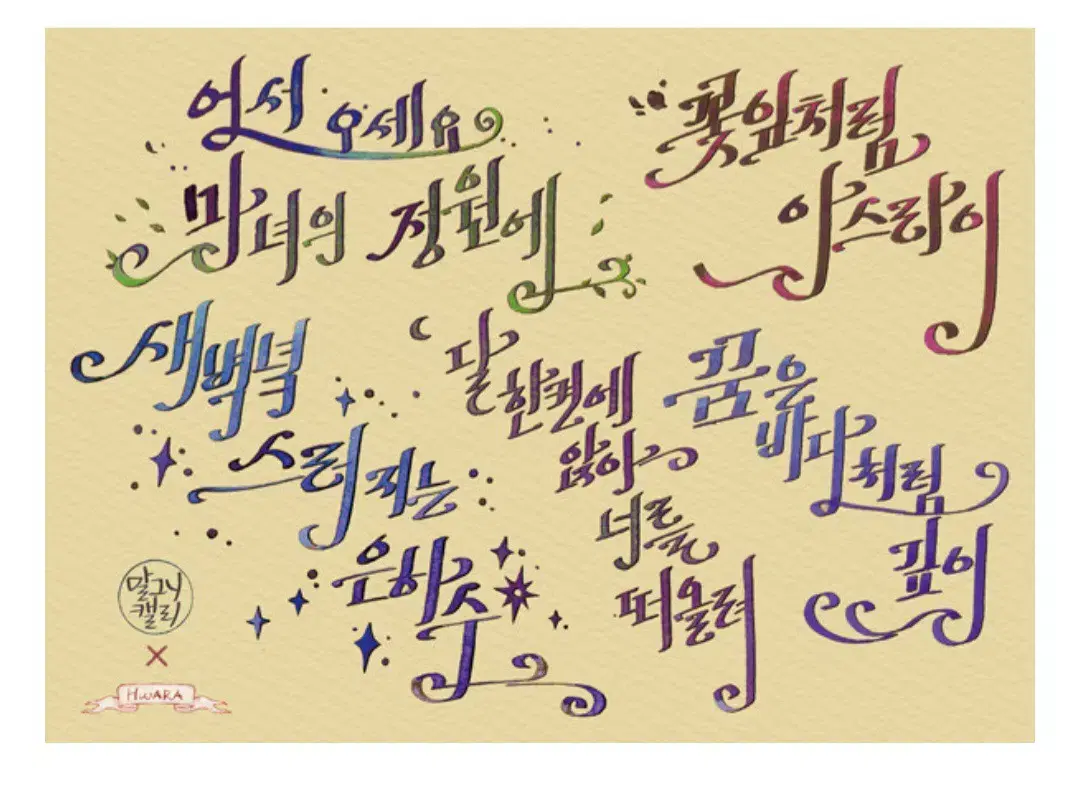 어서 오세요
마녀의 정원에
꽃잎처럼
아스라이
새벽녘
스러지는
은하수
달
한켠에
앉아
너를
떠올려
꿈은
바다처럼
깊이
말그니
캘리
×
HWARA